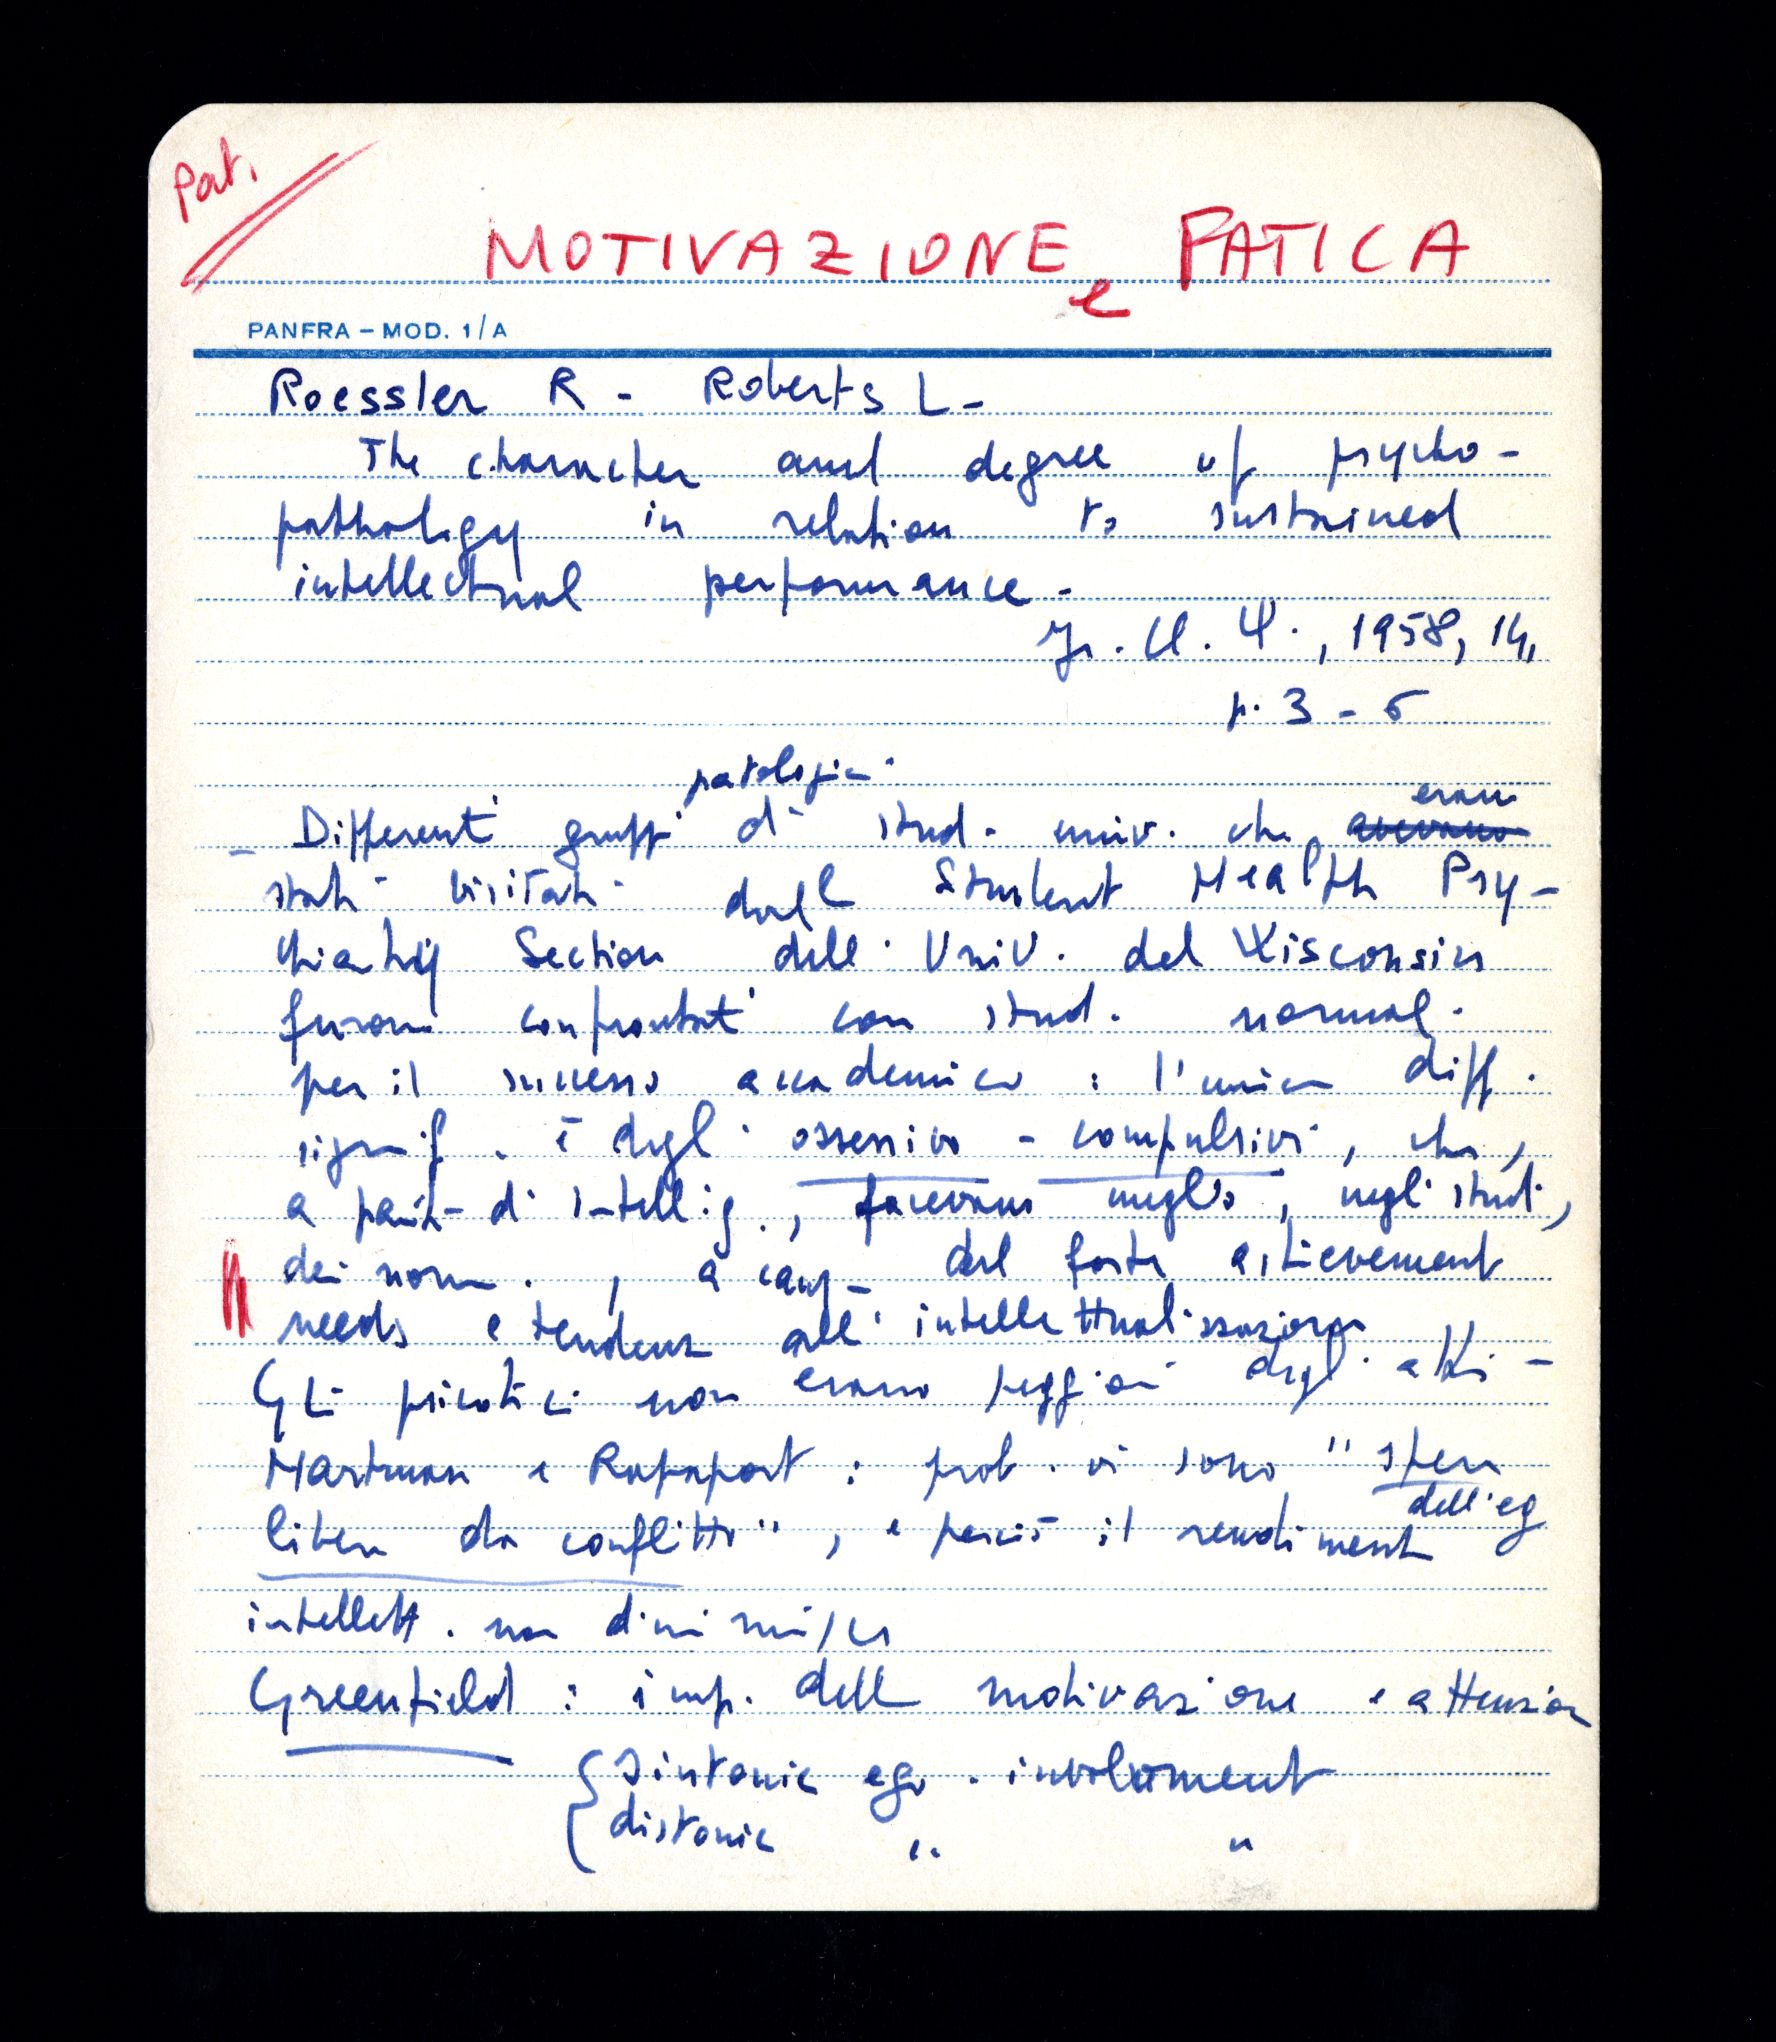 Pat.
MOTIVAZIONE e PATICA
PANFRA – MOD. 1/A
Roessler R - Roberts L -
The character and degree of psycho-
pathology in relation to sustained
intellectual performance -
Jr. Cl. Ψ., 1958, 14,
p. 3 - 6
patologici
- Differenti gruppi di stud. univ. che avevano erano
stati visitati dall Student Health Psy-
chiatry Section dell' Univ. del Wisconsin
furono confrontati con stud. normali
per il successo accademico : l'unica diff.
signif. è degli ossessivo - compulsivi, che,
a parità di intellig., facevano meglio, negli studi,
dei norm., a caus del forte achievement
needs e tendenza all' intellettualizzazione
Gli psicotici non erano peggiori degli altri -
Hartman e Rapaport : prob. vi sono "sfere
dell'ego
libere da conflitto", e perciò il rendimento
intellett. non diminuisce
Greenfield : imp. della motivazione e attenzione
{ Sintonic ego - involvment
distonic " "